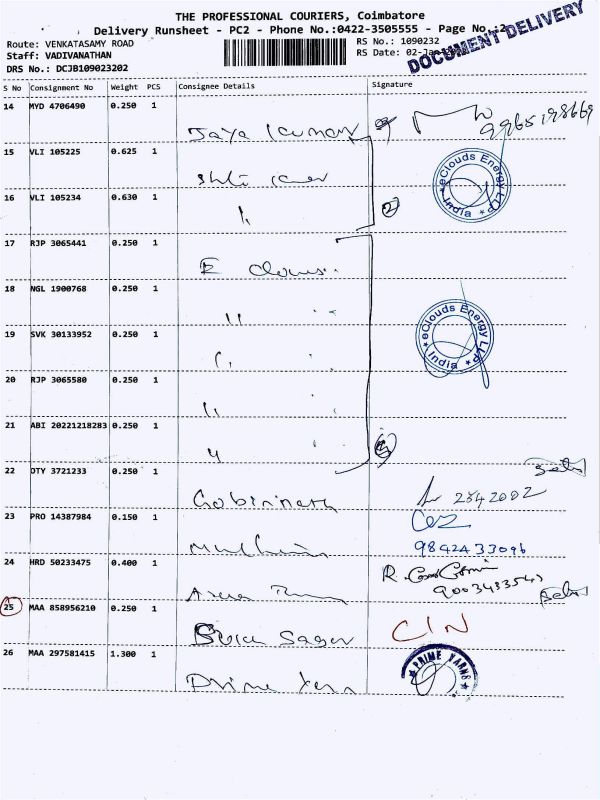 THE PROFESSIONAL COURIERS, Coimbatore
Delivery Runsheet - PC2 - Phone No.:0422-3505555 - Page No.:2
DOCUMENT DELIVERY
Route: VENKATASAMY ROAD
RS No.: 1090232
Staff: VADIVANATHAN
RS Date: 02-Jan
DRS No.: DCJB109023202
S No Consignment No Weight PCS Consignee Details Signature
14 MYD 4706490 0.250 1
Jaya Kumar 9965198669
15 VLI 105225 0.625 1
eClouds Energy LLP India
16 VLI 105234 0.630 1
2
17 RJP 3065441 0.250 1
E Clouds
18 NGL 1900768 0.250 1
eClouds Energy LLP India
19 SVK 30133952 0.250 1
20 RJP 3065580 0.250 1
21 ABI 20221218283 0.250 1
22 OTY 3721233 0.250 1
Gobirinath 2542002
23 PRO 14387984 0.150 1
9842433096
24 HRD 50233475 0.400 1
25 MAA 858956210 0.250 1
Sagar
26 MAA 297581415 1.300 1
PRIME YARNS
Prime Yarn